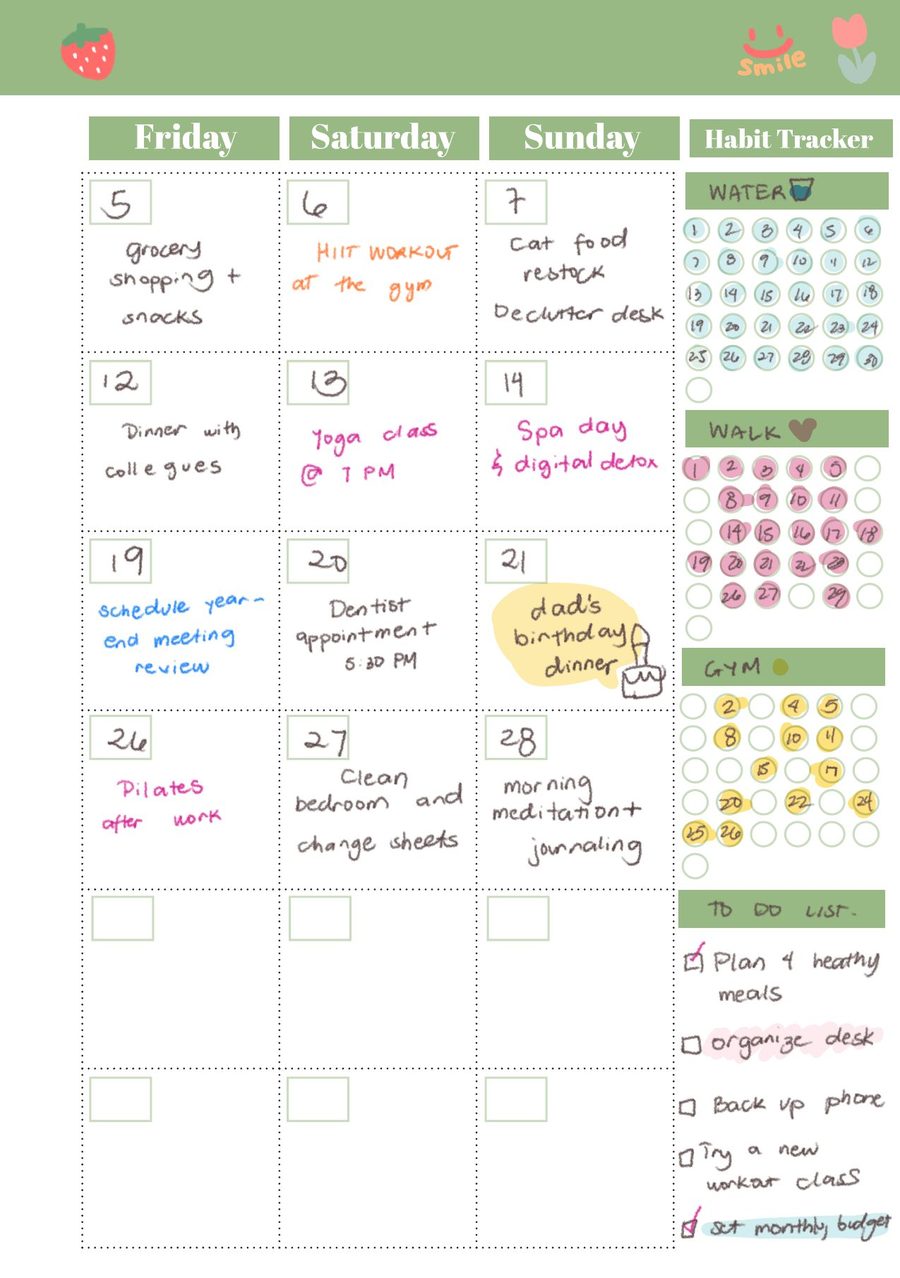 Smile
Friday Saturday Sunday Habit Tracker
5
grocery
shopping +
snacks
6
HIIT WORKOUT
at the gym
7
Cat food
restock
Declutter desk
12
Dinner with
collegues
13
Yoga class
@ 7 PM
14
Spa day
& digital detox
19
schedule year-
end meeting
review
20
Dentist
appointment
5:30 PM
21
dad's
birthday
dinner
26
Pilates
after work
27
Clean
bedroom and
change sheets
28
morning
meditation +
journaling
WATER
1 2 3 4 5 6
7 8 9 10 11 12
13 14 15 16 17 18
19 20 21 22 23 24
25 26 27 28 29 30
WALK
1 2 3 4 5
8 9 10 11
14 15 16 17 18
19 20 21 22 23
26 27 29
GYM
2 4 5
8 10 11
15 17
20 22 24
25 26
TO DO LIST.
Plan 4 heathy
meals
organize desk
Back up phone
Try a new
workout class
set monthly budget